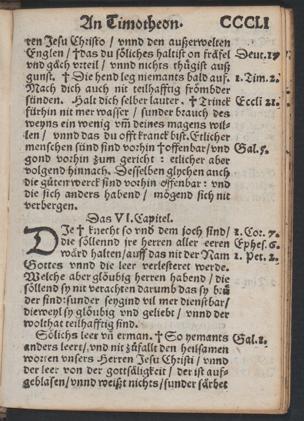 An Timotheon. CCCLI
ren Jesu Christo / vnnd den außerwelten
Englen / †das du söliches haltist on fräfel Deut. 17
vnd gäch vrteil / vnnd nichts thügist auß
gunst. † Die hend leg niemants bald auf. 1. Tim. 2.
Mach dich auch nit teilhafftig frömbder
sünden. Halt dich selber lauter. † Trinck Eccli 21.
fürhin nit mer wasser / sunder brauch des
weyns ein wenig von deines magens wil-
len / vnnd das du offt kranck bist. Etlicher
menschen sünd sind vorhin †offenbar / vnd Gal. 5.
gond vorhin zum gericht : etlicher aber
volgend hinnach. Desselben glychen auch
die güten werck sind vorhin offenbar : vnd
die sich anders habend / mögend sich nit
verbergen.
Das VI. Capitel.
DJe † knecht so vnd dem joch sind / 1. Cor. 7.
die söllennd jre herren aller eeren Ephes. 6.
wärd halten / auff das nit der Nam 1. Pet. 2.
Gottes vnnd die leer verlesteret werde.
Welche aber glöubig herren habend / die
söllend sy nit verachten darumb das sy brü
der sind: sunder seygind vil mer dienstbar /
dieweyl sy glöubig vnd geliebt / vnnd der
wolthat teilhafftig sind.
Sölichs leer vñ erman. † So yemants Gal. 1.
anders leert / vnd nit züfallt den heilsamen
worten vnsers Herren Jesu Christi / vnnd
der leer von der gottsäligkeit / der ist auf-
geblasen / vnnd weißt nichts / sunder färbet